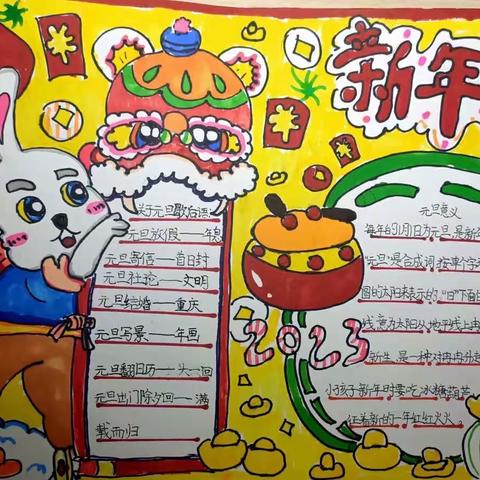 新年
关于元旦歇后语
元旦放假——年息
元旦寄信——首日封
元旦社论——文明
元旦结婚——重庆
元旦写景——年画
元旦翻日历——头一回
元旦出门除夕回——满
载而归
2023
元旦意义
每年的1月1日为元旦,是新
"元旦"是合成词,按单个字
圆的太阳来表示的,"日"下面
线意为太阳从地平线上冉
新生,是一种对冉冉升起
小孩子新年时要吃冰糖葫芦
征着新的一年红红火火